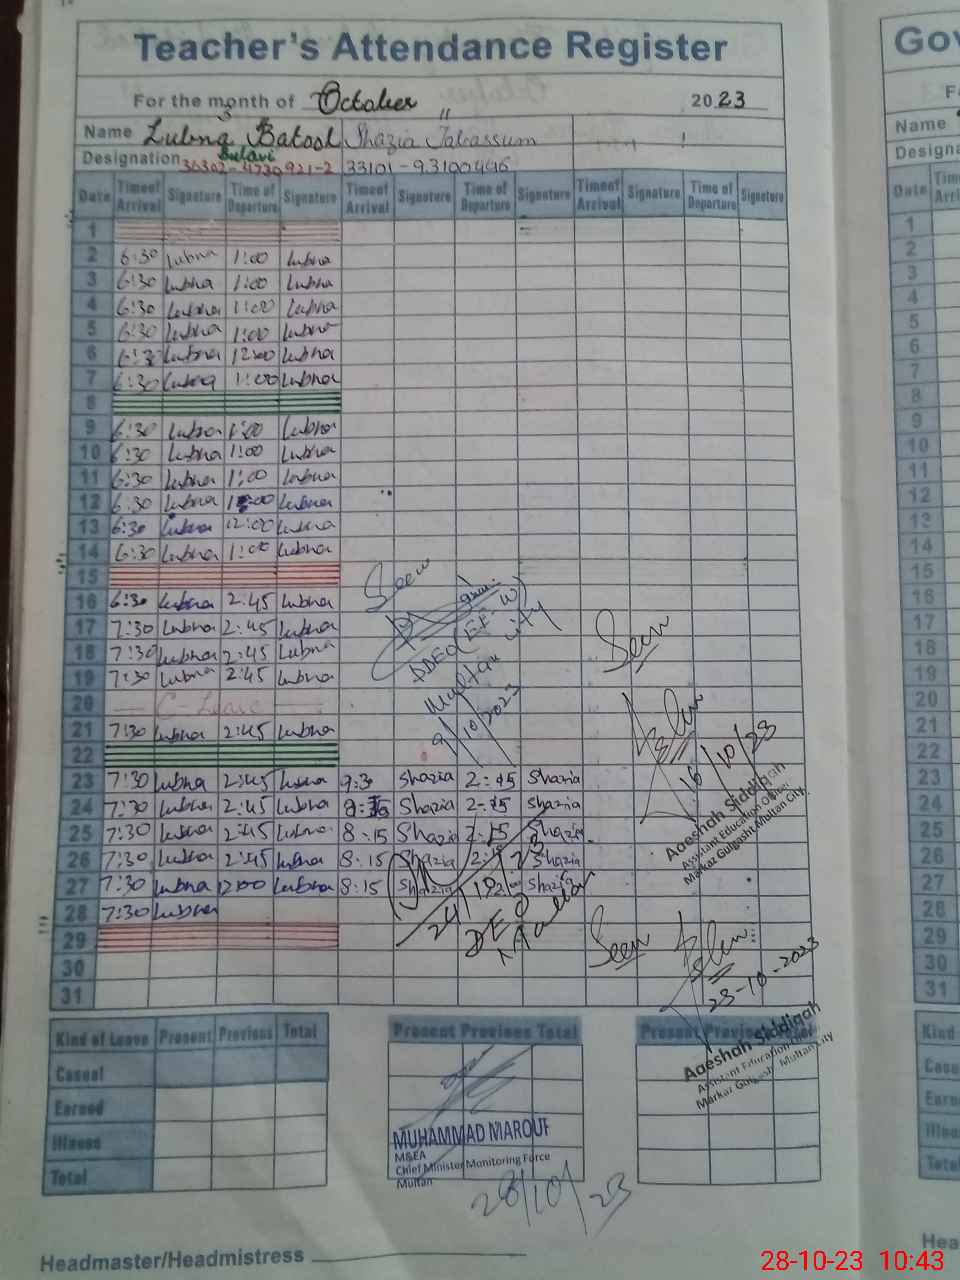 Teacher's Attendance Register
For the month of October 2023
Name Lubna Batool Shazia Tabassum
Designation 36302-4730921-2 33101-9310046
Date Time of Arrival Signature Time of Departure Signature Time of Arrival Signature Time of Departure Signature Time of Arrival Signature Time of Departure Signature
1
2 6:30 Lubna 1:00 Lubna
3 6:30 Lubna 1:00 Lubna
4 6:30 Lubna 1:00 Lubna
5 6:30 Lubna 1:00 Lubna
6 6:30 Lubna 12:00 Lubna
7 6:30 Lubna 1:00 Lubna
8
9 6:30 Lubna 1:00 Lubna
10 6:30 Lubna 1:00 Lubna
11 6:30 Lubna 1:00 Lubna
12 6:30 Lubna 1:00 Lubna
13 6:30 Lubna 12:00 Lubna
14 6:30 Lubna 1:00 Lubna
15
Seen
16 6:30 Lubna 2:45 Lubna
17 7:30 Lubna 2:45 Lubna
18 7:30 Lubna 2:45 Lubna
19 7:30 Lubna 2:45 Lubna
DDEO (EE-W)
Multan City
9/10/2023
Seen
16/10/23
Aaeshah Siddiqah
Assistant Education Officer
Markaz Gulgasht Multan City
20 C-Leave
21 7:30 Lubna 2:45 Lubna
22
23 7:30 Lubna 2:45 Lubna 9:30 Shazia 2:45 Shazia
24 7:30 Lubna 2:45 Lubna Shazia 2:45 Shazia
25 7:30 Lubna 2:45 Lubna 8:15 Shazia Shazia
26 7:30 Lubna 2:45 Lubna 8:15 Shazia Shazia
27 7:30 Lubna 12:00 Lubna 8:15 Shazia Shazia
28 7:30 Lubna
29
30
31
24/10/23
DEO
Multan
Seen
23-10-2023
Aaeshah Siddiqah
Assistant Education Officer
Markaz Gulgasht Multan City
Kind of Leave Present Previous Total Present Previous Total Present Previous Total
Casual
Earned
Illness
Total
MUHAMMAD MAROUF
M&EA
Chief Minister Monitoring Force
Multan
28/10/23
Headmaster/Headmistress
Name
Date
1
2
3
4
5
6
7
8
9
10
11
12
13
14
15
16
17
18
19
20
21
22
23
24
25
26
27
28
29
30
31
28-10-23 10:43